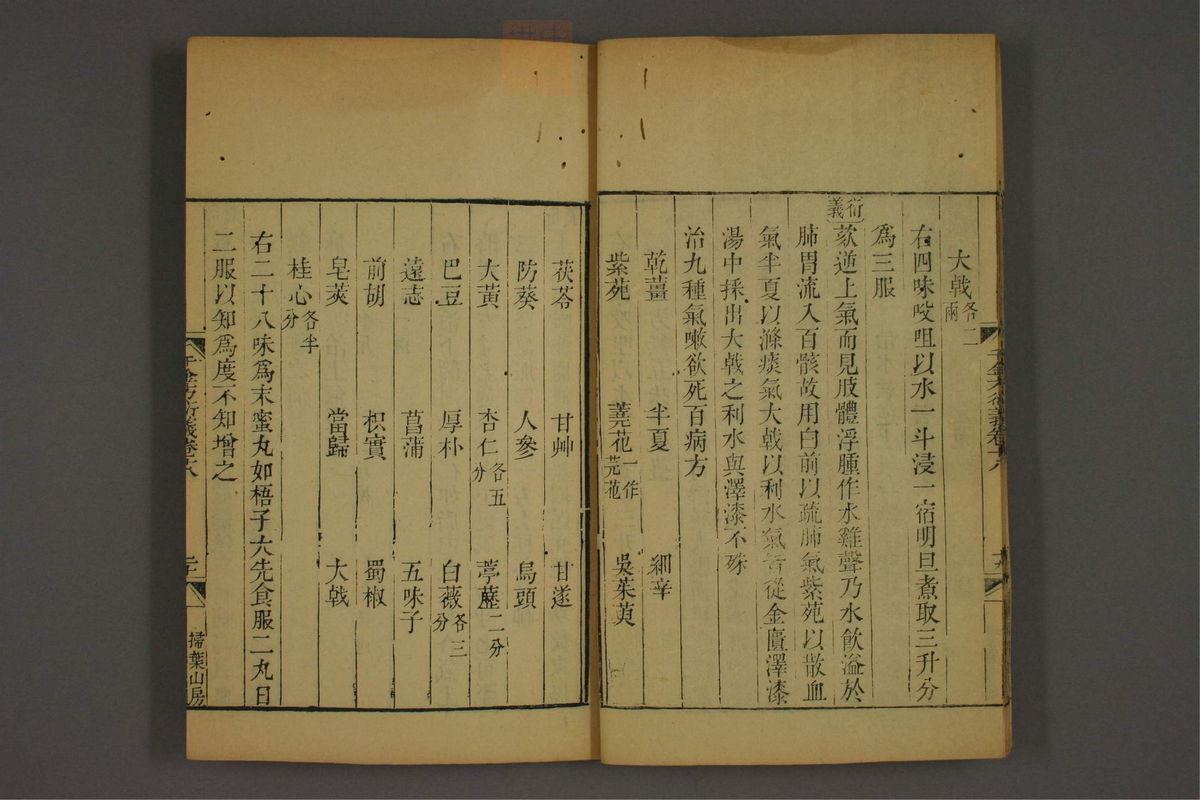 大戟各二兩
右四味㕮咀以水一斗浸一宿明旦煮取三升分
爲三服
衍義
欬逆上氣而見肢體浮腫作水雞聲乃水飲溢於
肺胃流入百骸故用白前以疏肺氣紫苑以散血
氣半夏以滌痰氣大戟以利水氣皆從金匱澤漆
湯中採出大戟之利水與澤漆不殊
治九種氣嗽欲死百病方
乾薑 半夏 細辛
紫苑 蕘花一作芫花 吳茱萸
茯苓 甘艸 甘遂
防葵 人參 烏頭
大黃 杏仁各五分 葶藶二分
巴豆 厚朴 白薇各三分
遠志 菖蒲 五味子
前胡 枳實 蜀椒
皂莢 當歸 大戟
桂心各半分
右二十八味爲末蜜丸如梧子大先食服二丸日
二服以知爲度不知增之
千金方衍義卷十八
二十
掃葉山房